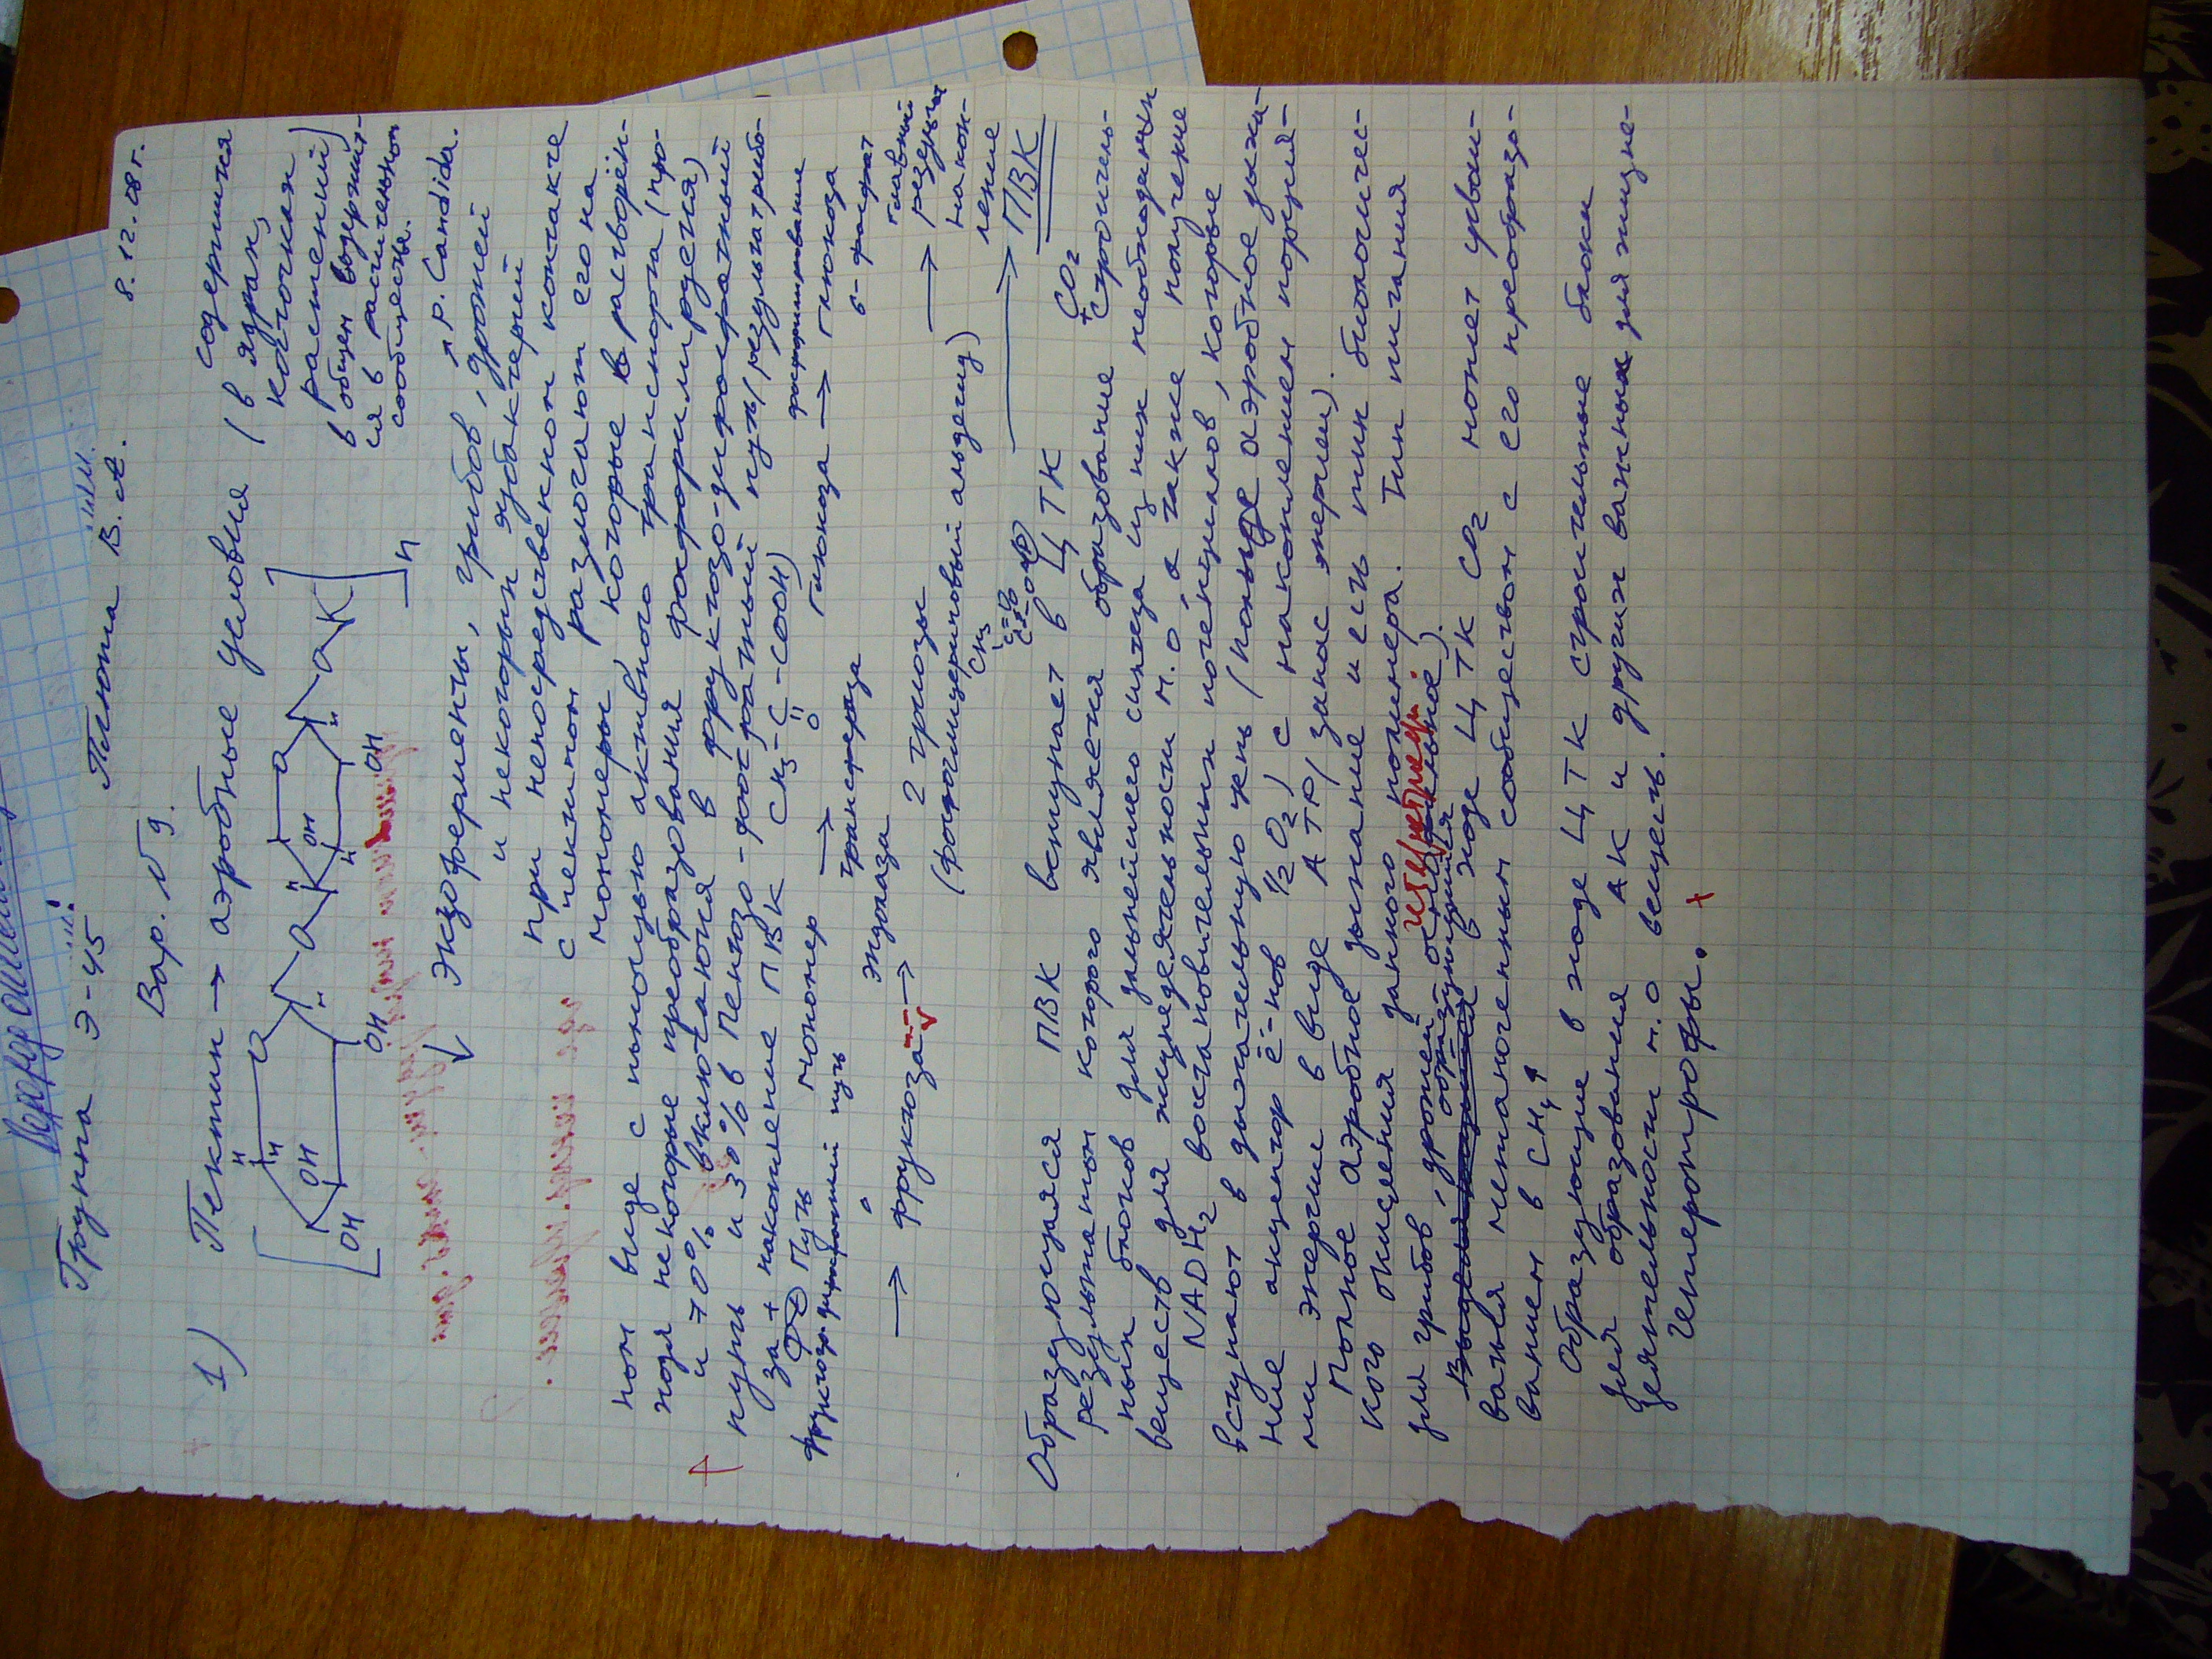 Группа Э-45
Плюта В. А.
8.12.08г.
Вар. №9.
1) Пектин → аэробные условия (содержится
в ядрах,
косточках
растений)
в общем содержит-
ся в растительном
сообществе.
OH
OH
OH
OH
OH
H
H
H
H
n
↓ Экзоферменты, грибов, дрожжей → р. Candida.
и некоторых эубактерий
при непосредственном контакте
с пектином разлогают его на
мономеры, которые в растворён-
ном виде с помощью активного транспорта (про-
ходя некоторые преобразования фосфорилируется)
и 70% включаются в фруктозо-дифосфатный
путь и 30% в Пентозо-фосфатный путь (результатрибо-
за + накопление ПВК CH₃-C-COOH)
O
ФД Путь мономер → глюкоза → глюкоза
фруктозо-дифосфатный путь
трансфераза
фосфорилирование
6-фосфат
→ фруктоза → эндолаза 2 триозы → главный
результат
накоп-
ление
(фосфоглицериновый альдегид) → ПВК
Образующаяся ПВК вступает в ЦТК
CH₃
+ CO₂
результатом которого является образование строитель-
ных блоков для дальнейшего синтеза из них необходимых
веществ для жизнедеятельности м.о, а также получение
NADH₂ восстановительных потенциалов, которые
вступают в дыхательную цепь (полное аэробное дыха-
ние акцептор ē-нов ½O₂) с накоплением порция-
ми энергии в виде ATP/запас энергии).
Полное аэробное дыхание и есть тип биологичес-
кого окисления данного полимера. Тип питания
для грибов, дрожжей осмо
образующийся в ходе ЦТК CO₂ может усваи-
ваться метаногенным сообществом с его преобразо-
ванием в CH₄↑
Образующие в ходе ЦТК строительные блоки
для образования АК и других важных для жизне-
деятельности м.о веществ.
Гетеротрофы.